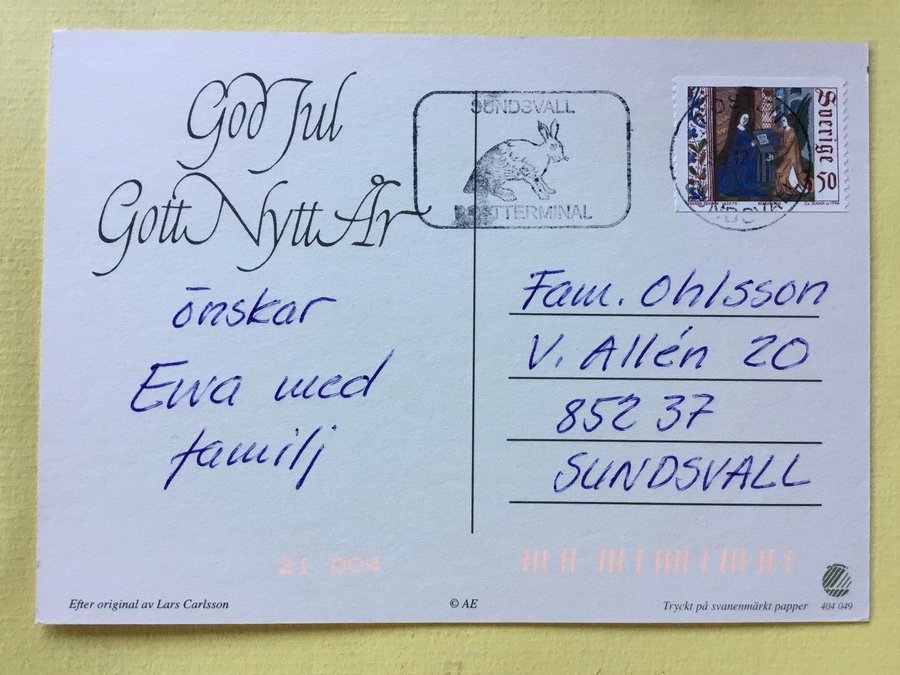 God Jul
Gott Nytt År
önskar
Ewa med
familj
SUNDSVALL
POSTTERMINAL
Sverige
3 50
Fam. Ohlsson
V. Allén 20
852 37
SUNDSVALL
21 004
Efter original av Lars Carlsson
© AE
Tryckt på svanenmärkt papper
404 049